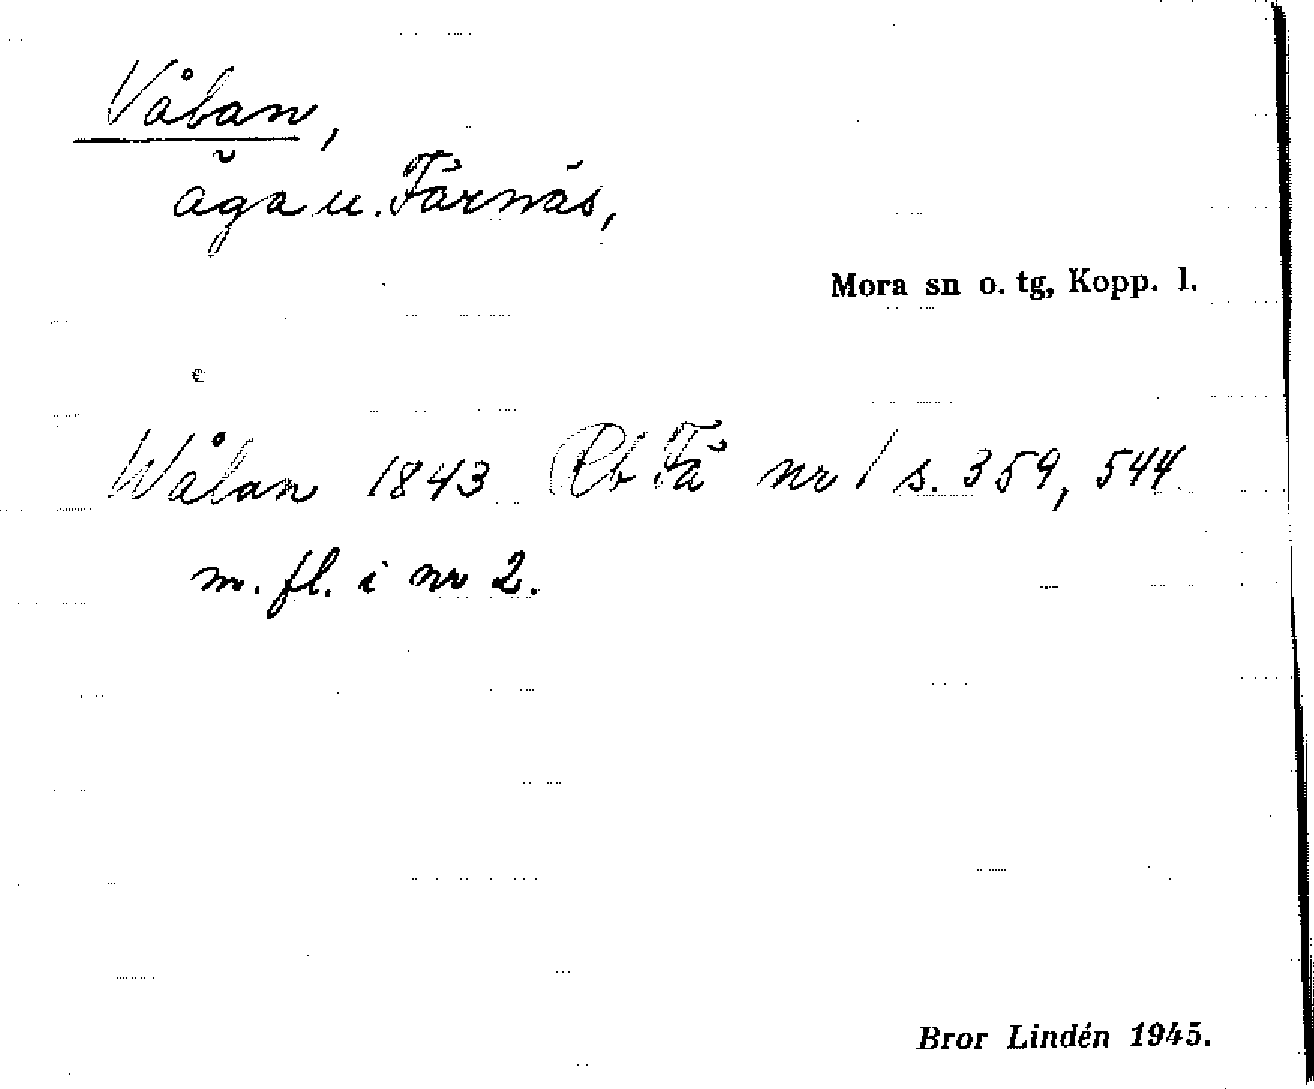 Vålan,
äga u. Färnäs,
Mora sn o. tg, Kopp. l.
Wålan 1843 Rb Fä nr 1 s. 359, 544
m. fl. i nr 2.
Bror Lindén 1945.